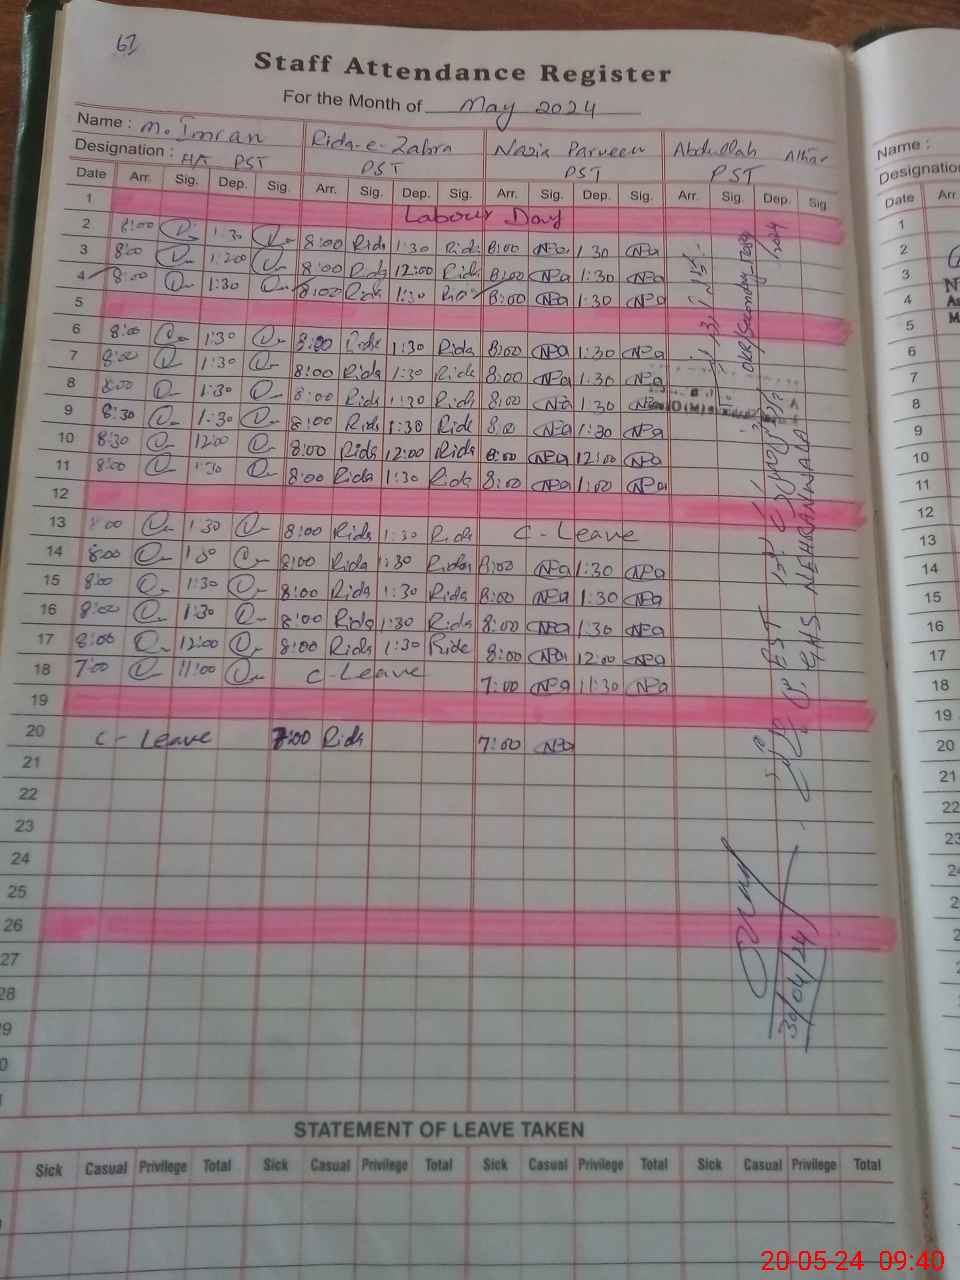 61
Staff Attendance Register
For the Month of May 2024
Name : M. Imran Rida-e-Zahra Nazia Parveen Abdullah Athar Name :
Designation : HT PST PST PST PST Designation
Date Arr. Sig. Dep. Sig. Arr. Sig. Dep. Sig. Arr. Sig. Dep. Sig. Arr. Sig. Dep. Sig Date Arr
1 Labour Day 1
2 8:00 1:30 8:00 Rida 1:30 Rida 8:00 NPa 1:30 NPa 2
3 8:00 1:200 8:00 Rida 12:00 Rida 8:00 NPa 1:30 NPa 3
4 8:00 1:30 8:00 Rida 1:30 Rida 8:00 NPa 1:30 NPa 4
5 5
6 8:00 1:30 8:00 Rida 1:30 Rida 8:00 NPa 1:30 NPa 6
7 8:00 1:30 8:00 Rida 1:30 Rida 8:00 NPa 1:30 NPa 7
8 8:00 1:30 8:00 Rida 1:30 Rida 8:00 NPa 1:30 NPa 8
9 8:30 1:30 8:00 Rida 1:30 Rida 8:00 NPa 1:30 NPa 9
10 8:30 12:00 8:00 Rida 12:00 Rida 8:00 NPa 12:00 NPa 10
11 8:00 1:30 8:00 Rida 1:30 Rida 8:00 NPa 1:00 NPa 11
12 12
13 8:00 1:30 8:00 Rida 1:30 Rida C-Leave 13
14 8:00 1:30 8:00 Rida 1:30 Rida 8:00 NPa 1:30 NPa 14
15 8:00 1:30 8:00 Rida 1:30 Rida 8:00 NPa 1:30 NPa 15
16 8:00 1:30 8:00 Rida 1:30 Rida 8:00 NPa 1:30 NPa 16
17 8:00 12:00 8:00 Rida 1:30 Rida 8:00 NPa 12:00 NPa 17
18 7:00 11:00 C-Leave 7:00 NPa 11:30 NPa 18
19 19
20 C-Leave 7:00 Rida 7:00 NPa 20
21 21
22 22
23 23
24
25
26
27
28
PST
GHS NEHRANWALA
30/04/24
STATEMENT OF LEAVE TAKEN
Sick Casual Privilege Total Sick Casual Privilege Total Sick Casual Privilege Total Sick Casual Privilege Total
20-05-24 09:40